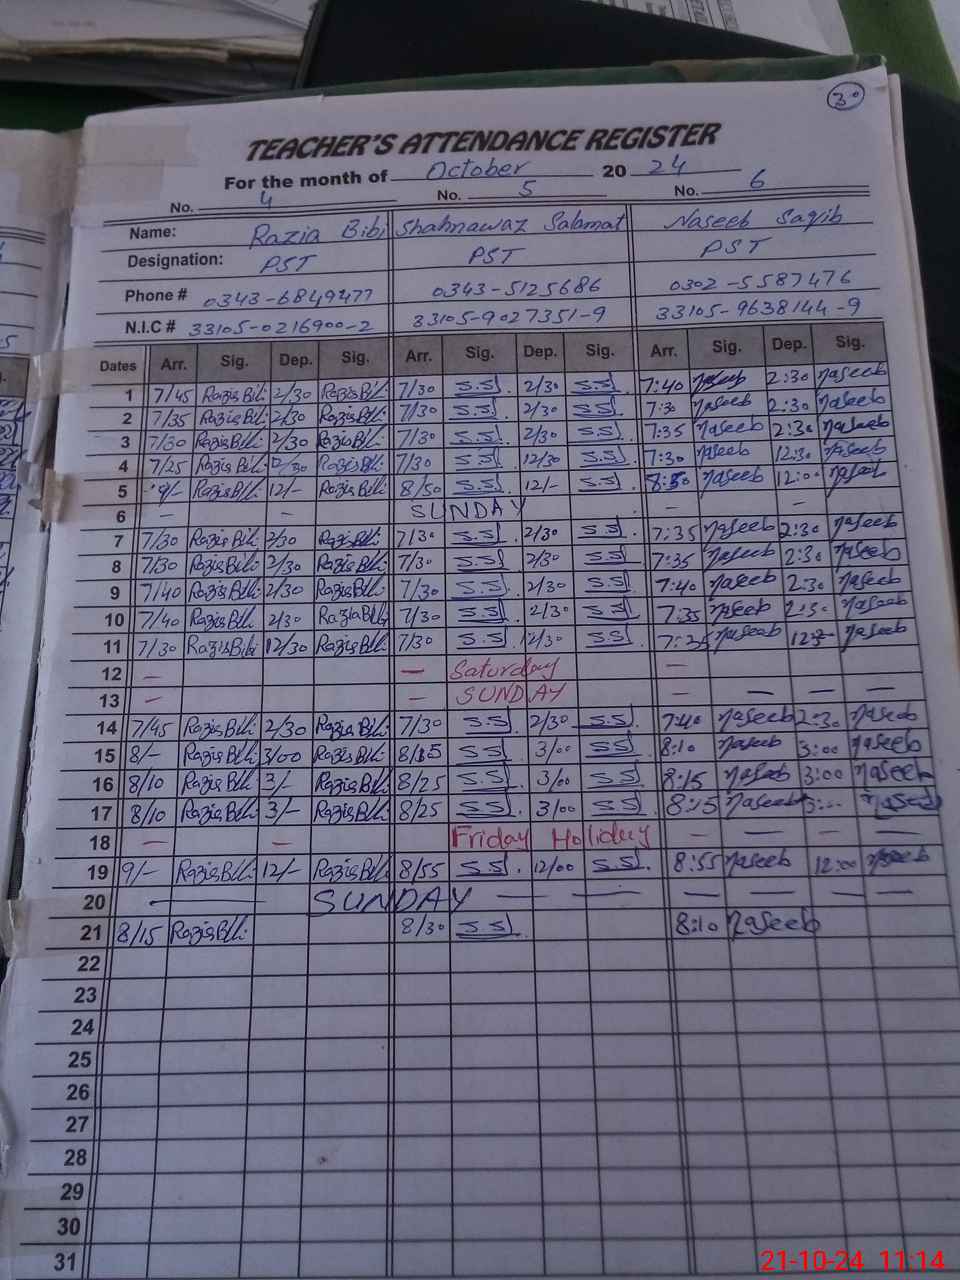 30
TEACHER'S ATTENDANCE REGISTER
For the month of October 2024
No. 4 No. 5 No. 6
Name: Razia Bibi Shahnawaz Salamat Naseeb Saqib
Designation: PST PST PST
Phone # 0343-6849477 0343-5125686 0302-5587476
N.I.C # 33105-0216900-2 33105-9027351-9 33105-9638144-9
Dates Arr. Sig. Dep. Sig. Arr. Sig. Dep. Sig. Arr. Sig. Dep. Sig.
1 7/45 RaziaBibi 2/30 RaziaBibi 7/30 S.S 2/30 S.S 7:40 Naseeb 2:30 Naseeb
2 7/35 RaziaBibi 2/30 RaziaBibi 7/30 S.S 2/30 S.S 7:30 Naseeb 2:30 Naseeb
3 7/30 RaziaBibi 2/30 RaziaBibi 7/30 S.S 2/30 S.S 7:35 Naseeb 2:30 Naseeb
4 7/25 RaziaBibi 12/30 RaziaBibi 7/30 S.S 12/30 S.S 7:30 Naseeb 12:30 Naseeb
5 9/- RaziaBibi 12/- RaziaBibi 8/50 S.S 12/- S.S 8:50 Naseeb 12:00 Naseeb
6 - - SUNDAY - -
7 7/30 RaziaBibi 2/30 RaziaBibi 7/30 S.S 2/30 S.S 7:35 Naseeb 2:30 Naseeb
8 7/30 RaziaBibi 2/30 RaziaBibi 7/30 S.S 2/30 S.S 7:35 Naseeb 2:30 Naseeb
9 7/40 RaziaBibi 2/30 RaziaBibi 7/30 S.S 2/30 S.S 7:40 Naseeb 2:30 Naseeb
10 7/40 RaziaBibi 2/30 RaziaBibi 7/30 S.S 2/30 S.S 7:35 Naseeb 2:30 Naseeb
11 7/30 RaziaBibi 12/30 RaziaBibi 7/30 S.S 12/30 S.S 7:35 Naseeb Naseeb
12 - - Saturday -
13 - - SUNDAY - - - -
14 7/45 RaziaBibi 2/30 RaziaBibi 7/30 S.S 2/30 S.S 7:40 Naseeb 2:30 Naseeb
15 8/- RaziaBibi 3/00 RaziaBibi 8/15 S.S 3/00 S.S 8:10 Naseeb 3:00 Naseeb
16 8/10 RaziaBibi 3/- RaziaBibi 8/25 S.S 3/00 S.S 8:15 Naseeb 3:00 Naseeb
17 8/10 RaziaBibi 3/- RaziaBibi 8/25 S.S 3/00 S.S 8:15 Naseeb Naseeb
18 - - Friday Holiday - - - -
19 9/- RaziaBibi 12/- RaziaBibi 8/55 S.S 12/00 S.S 8:55 Naseeb 12:00 Naseeb
20 SUNDAY
21 8/15 RaziaBibi 8/30 S.S 8:10 Naseeb
22
23
24
25
26
27
28
29
30
31
21-10-24 11:14